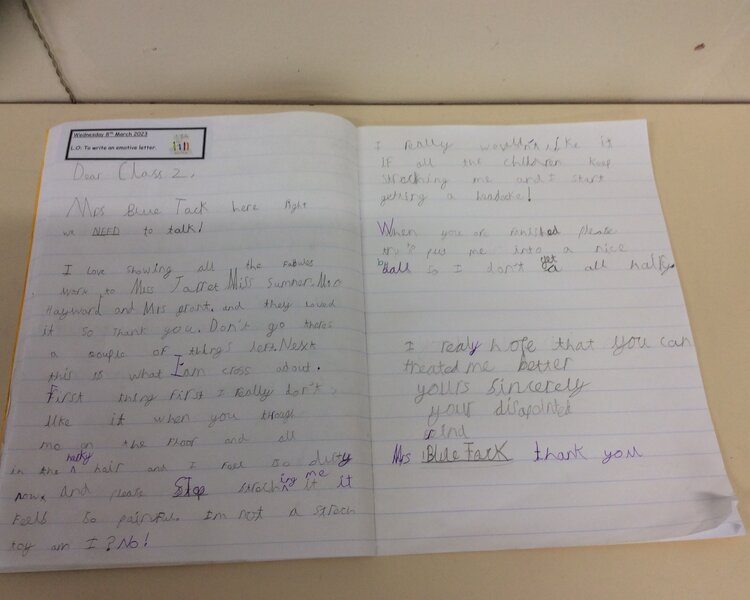 Wednesday 8th March 2023
L.O: To write an emotive letter.
Dear Class 2,
Mrs Blue Tack here Right
we NEED to talk!
I Love showing all the Fabulos
work to Miss Jarret Miss Sumner. Mrs
Hayward and Mrs grant. and they Loved
it so thank you. Don't go theres
a couple of things left. Next
this is what I am cross about.
First thing first I really don't
like it when you through
me on the floor and all
in the manky hair and I feel so dirty
now. And please Stop streching me it
feels so painful. Im not a strech
toy am I? No!
I really wouldn't like it
IF all the children keep
streching me and I start
getting a
When you are finished please
put me into a nice
ball so I don't get all
I realy hope that you can
treated me better
yours sincerely
your disapointed
Mrs Blue Tack thank you